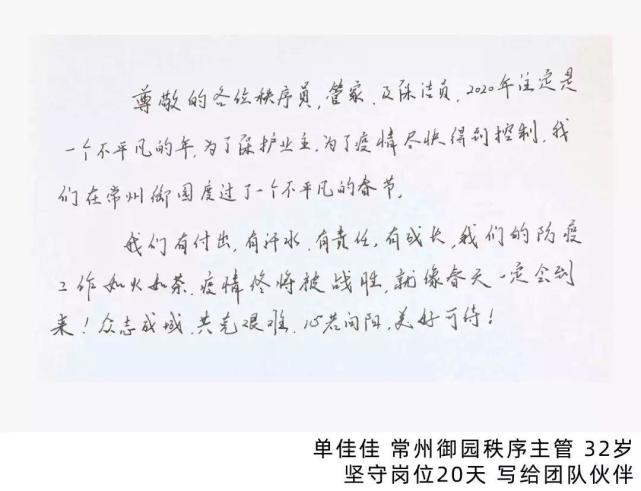 尊敬的各位秩序员,管家,及保洁员,2020年注定是
一个不平凡的年,为了保护业主,为了疫情尽快得到控制,我
们在常州御园度过了一个不平凡的春节。
我们有付出,有汗水,有责任,有成长,我们的防疫
工作如火如荼,疫情终将被战胜,就像春天一定会到
来!众志成城,共克艰难,心若向阳,美好可待!
单佳佳 常州御园秩序主管 32岁
坚守岗位20天 写给团队伙伴